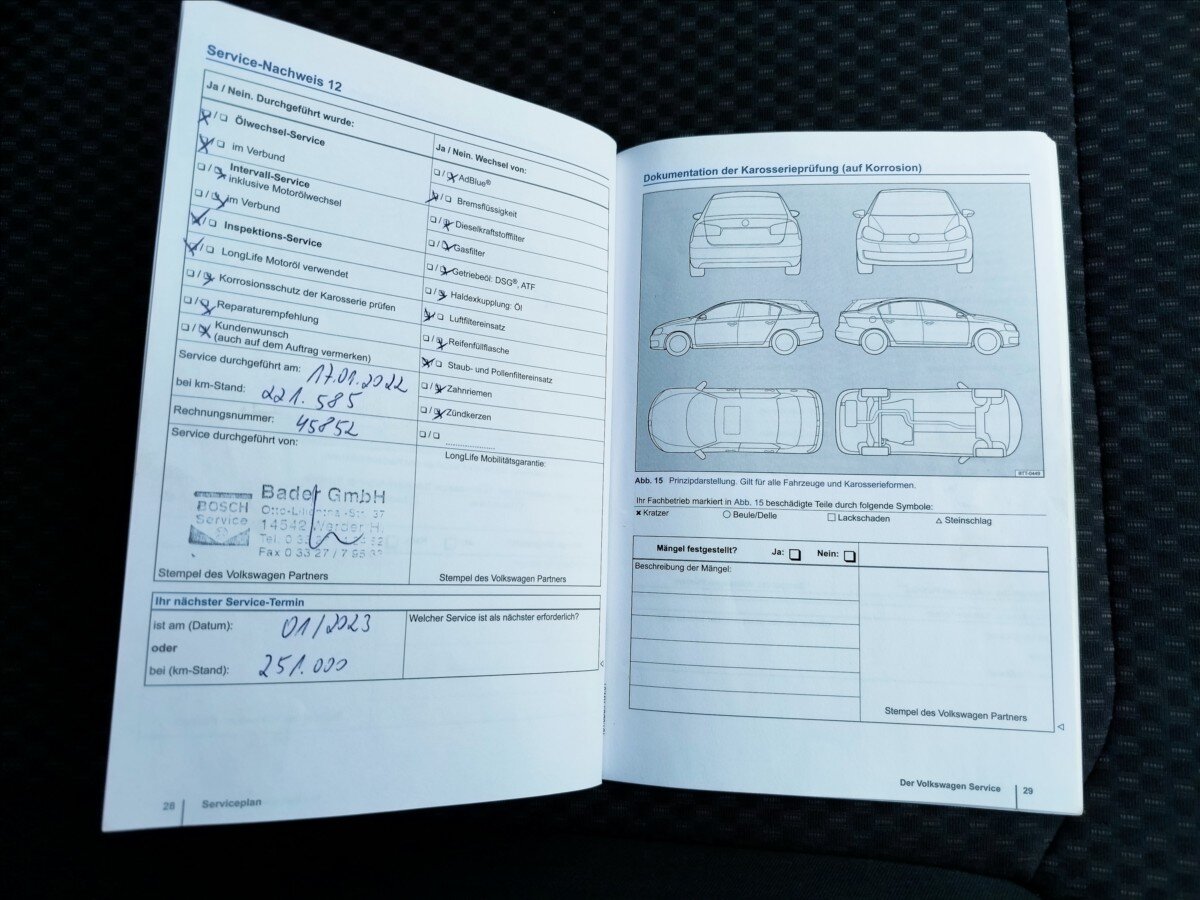 Service-Nachweis 12
Ja / Nein. Durchgeführt wurde:
☒ / ☐ Ölwechsel-Service
☒ / ☐ im Verbund
☐ / ☒ Intervall-Service
inklusive Motorölwechsel
☐ / ☒ im Verbund
☒ / ☐ Inspektions-Service
☒ / ☐ LongLife Motoröl verwendet
☐ / ☒ Korrosionsschutz der Karosserie prüfen
☐ / ☒ Reparaturempfehlung
☐ / ☒ Kundenwunsch
(auch auf dem Auftrag vermerken)
Service durchgeführt am: 17.01.2022
bei km-Stand: 221.585
Rechnungsnummer: 45852
Service durchgeführt von:
BOSCH
Service
Bader GmbH
Otto-Lilienthal-Str. 37
14542 Werder H.
Tel. 0 33
Fax 0 33 27 / 7 95
Stempel des Volkswagen Partners
Ja / Nein. Wechsel von:
☐ / ☒ AdBlue®
☒ / ☐ Bremsflüssigkeit
☐ / ☒ Dieselkraftstofffilter
☐ / ☒ Gasfilter
☐ / ☒ Getriebeöl: DSG®, ATF
☐ / ☒ Haldexkupplung: Öl
☒ / ☐ Luftfiltereinsatz
☐ / ☒ Reifenfüllflasche
☒ / ☐ Staub- und Pollenfiltereinsatz
☐ / ☒ Zahnriemen
☐ / ☒ Zündkerzen
☐ / ☐
LongLife Mobilitätsgarantie:
Stempel des Volkswagen Partners
Ihr nächster Service-Termin
ist am (Datum): 01/2023
oder
bei (km-Stand): 251.000
Welcher Service ist als nächster erforderlich?
28 Serviceplan
Dokumentation der Karosserieprüfung (auf Korrosion)
BTT-0449
Abb. 15 Prinzipdarstellung. Gilt für alle Fahrzeuge und Karosserieformen.
Ihr Fachbetrieb markiert in Abb. 15 beschädigte Teile durch folgende Symbole:
× Kratzer ○ Beule/Delle □ Lackschaden △ Steinschlag
Mängel festgestellt? Ja: ☐ Nein: ☐
Beschreibung der Mängel:
Stempel des Volkswagen Partners
Der Volkswagen Service 29